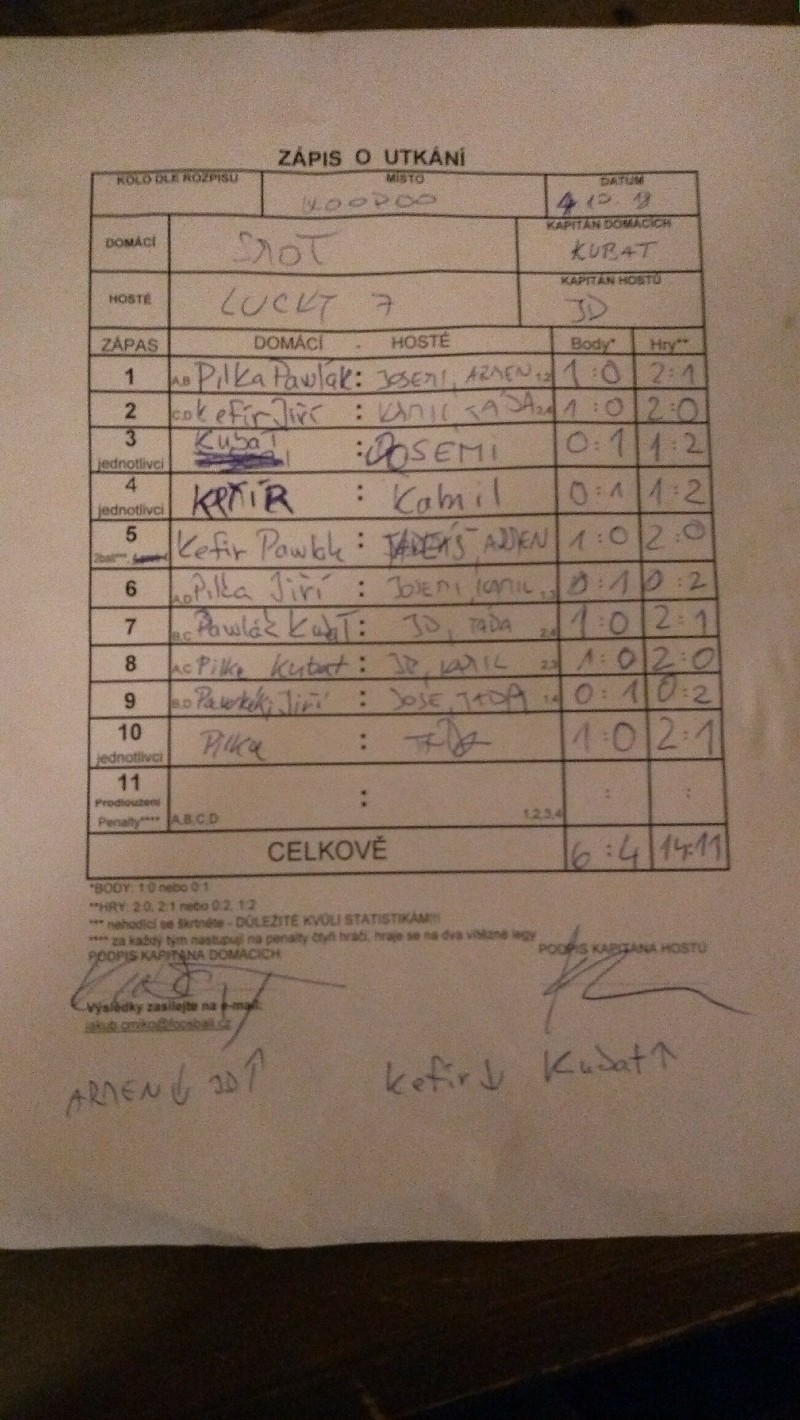 ZÁPIS O UTKÁNÍ
KOLO DLE ROZPISU MÍSTO DATUM
VOODOO 4 12. 18
DOMÁCÍ KAPITÁN DOMÁCÍCH
KUBAT
HOSTÉ LUCKY 7 KAPITÁN HOSTŮ
JD
ZÁPAS DOMÁCÍ - HOSTÉ Body* Hry**
1 A,B Pilka Pawlák : JOSEMI, ARMEN 1,2 1:0 2:1
2 C,D Kefír Jiří : KAMIL TÁĎA 1:0 2:0
3 jednotlivci Kubat : JOSEMI 0:1 1:2
4 jednotlivci KEFÍR : Kamil 0:1 1:2
5 2ball***, Kefír Pawlák : TADEÁŠ, ARMEN 1:0 2:0
6 A,D Pilka Jiří : JOSEMI, KAMIL 1,3 0:1 0:2
7 B,C Pawlák Kubat : JD, TÁĎA 2,4 1:0 2:1
8 A,C Pilka Kubat : JD, KAMIL 2,3 1:0 2:0
9 B,D Pawlák, Jiří : JOSE, TÁĎA 1,4 0:1 0:2
10 jednotlivci Pilka : TÁĎA 1:0 2:1
11 Prodloužení : : :
Penalty**** A,B,C,D 1,2,3,4
CELKOVĚ 6:4 14:11
*BODY: 1:0 nebo 0:1
**HRY: 2:0, 2:1 nebo 0:2, 1:2
*** nehodící se škrtněte - DŮLEŽITÉ KVŮLI STATISTIKÁM!!!
**** za každý tým nastupují na penalty čtyři hráči, hraje se na dva vítězné legy
PODPIS KAPITÁNA DOMÁCÍCH PODPIS KAPITÁNA HOSTŮ
Výsledky zasílejte na e-mail:
ARMEN ↓ JD ↑ Kefír ↓ Kubat ↑